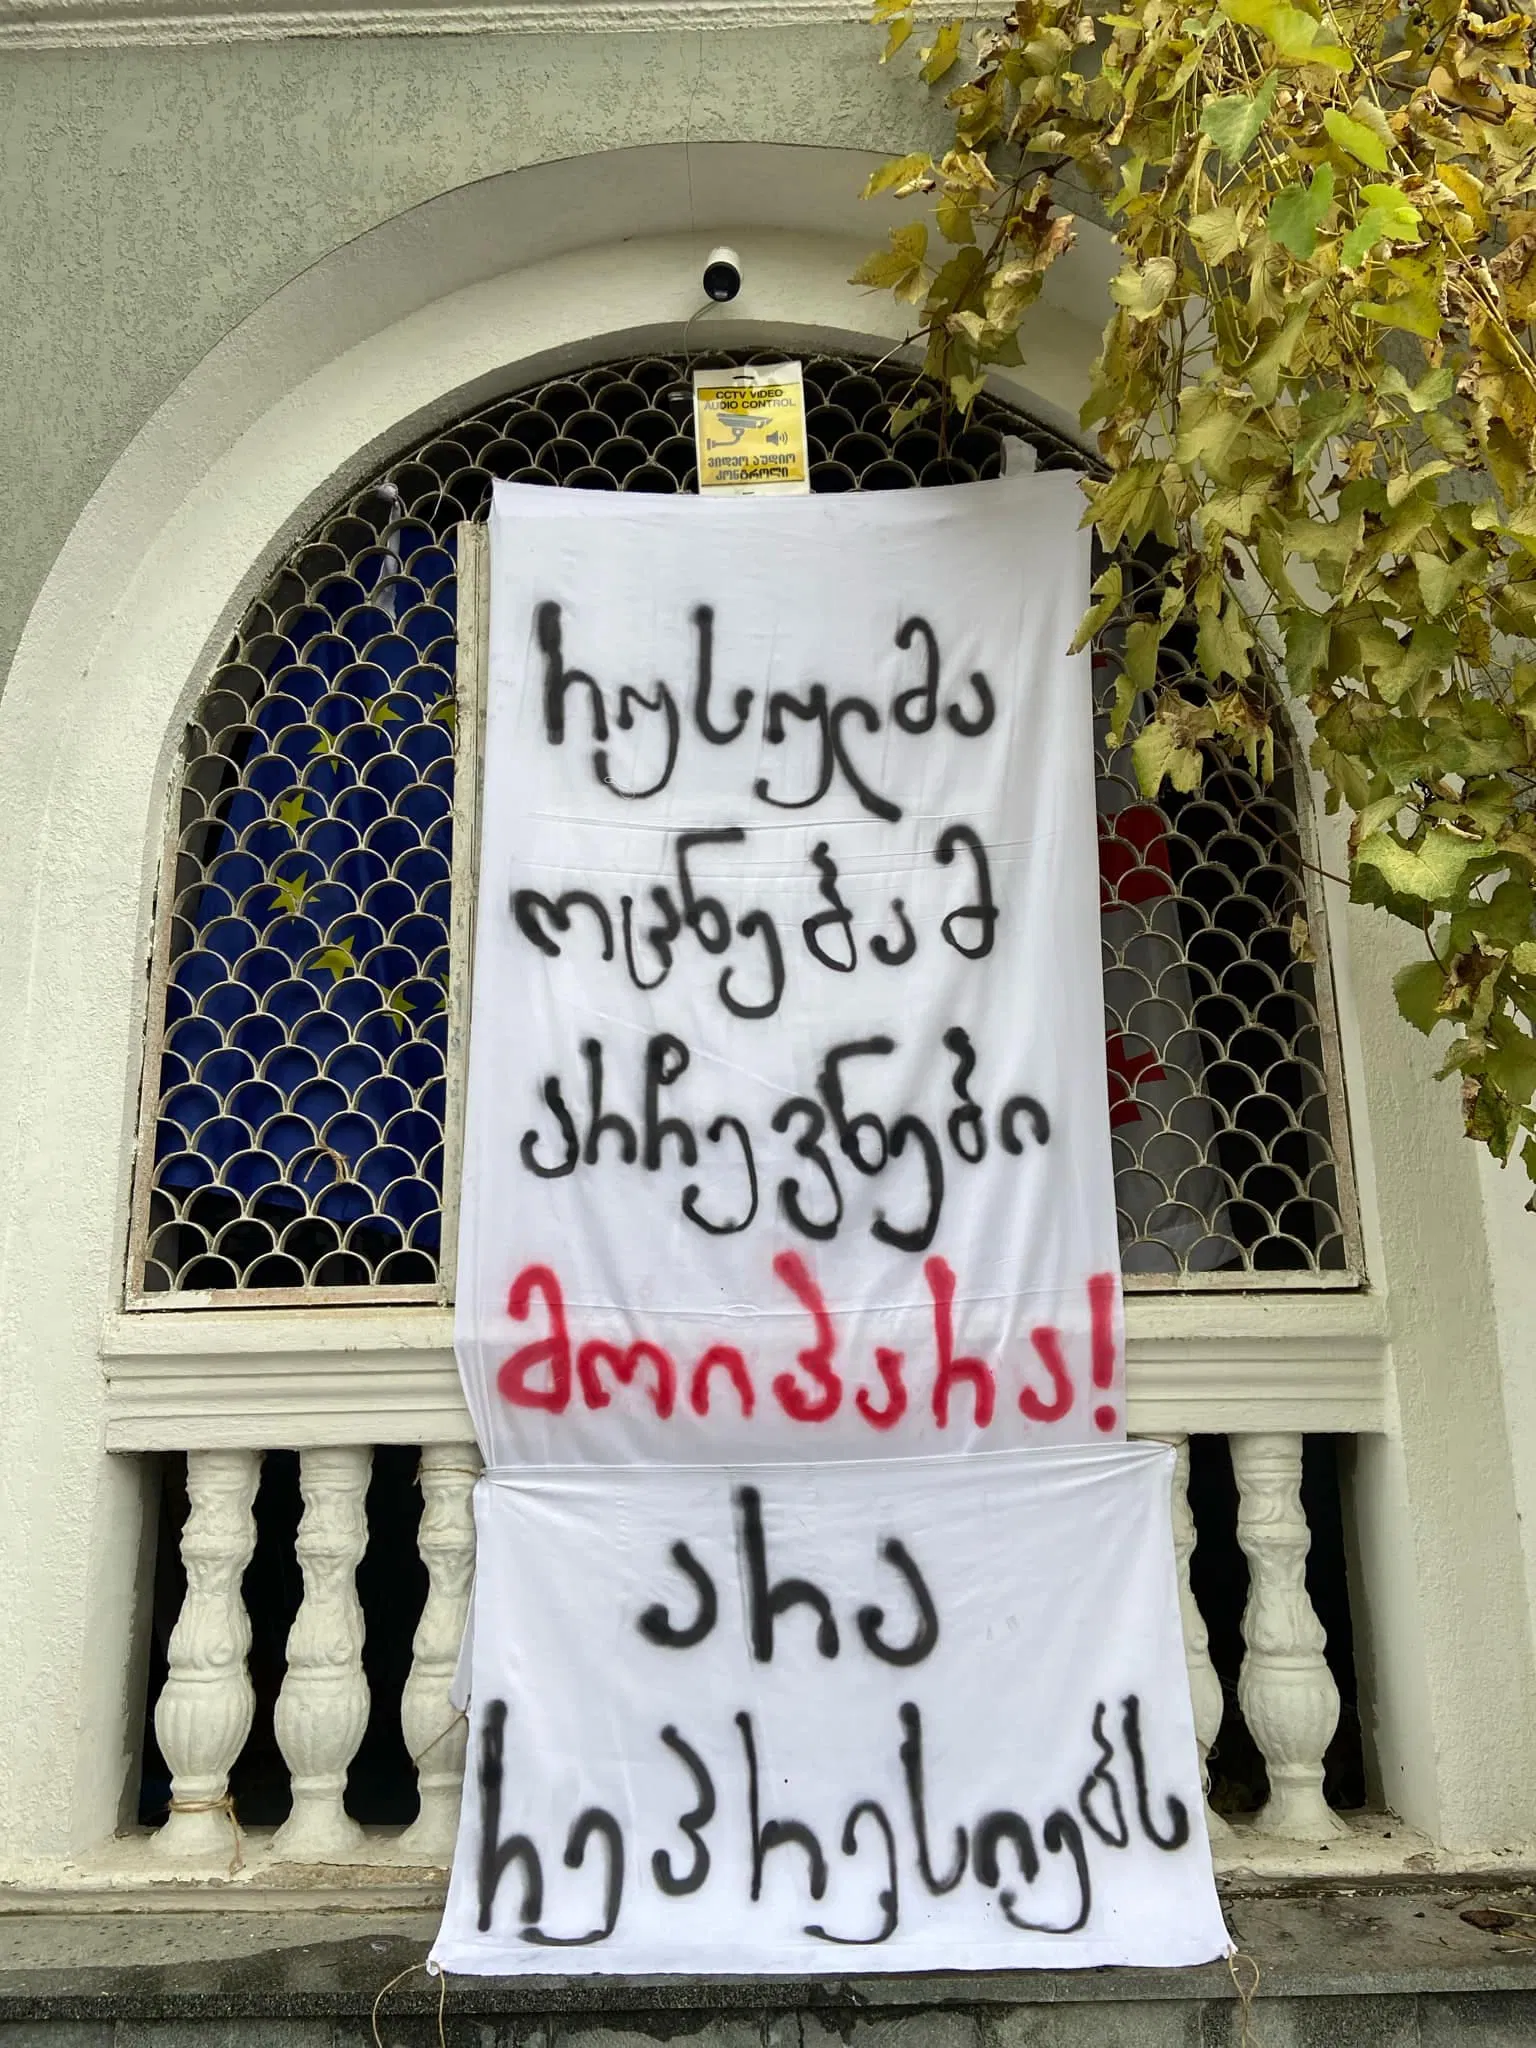 CCTV VIDEO
AUDIO CONTROL
ვიდეო აუდიო
კონტროლი
რუსულმა
ოცნებამ
არჩევნები
მოიპარა!
არა
რეპრესიებს